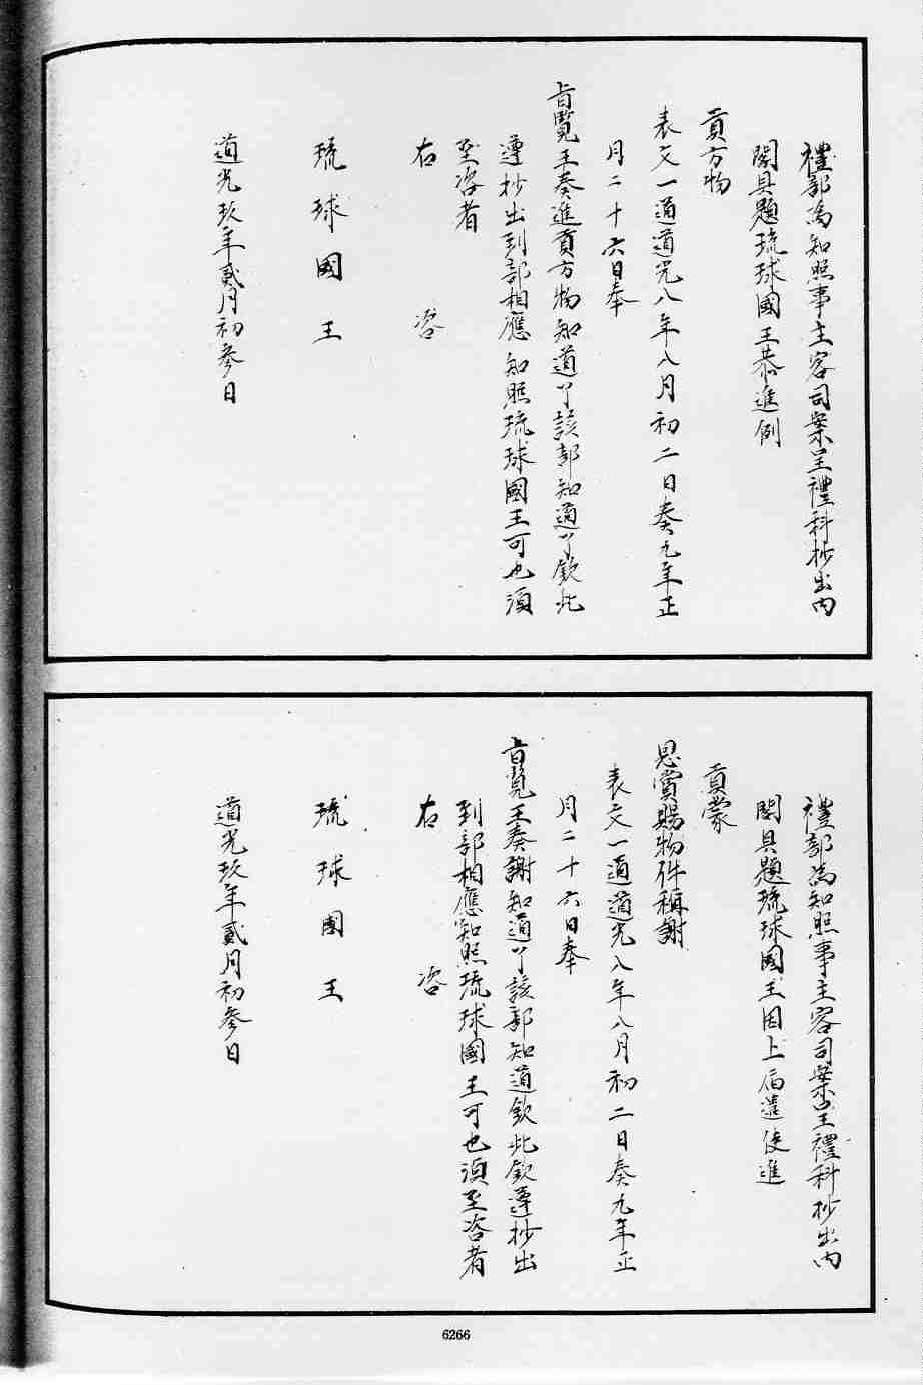 禮部爲知照事主客司案呈禮科抄出內
閣具題琉球國王恭進例
貢方物
表文一道道光八年八月初二日奏九年正
月二十六日奉
旨覽王奏進貢方物知道了該部知道了欽此
遵抄出到部相應知照琉球國王可也須
至咨者
右咨
琉球國王
道光玖年貳月初參日
禮部爲知照事主客司案呈禮科抄出內
閣具題琉球國王因上屆遣使進
貢蒙
恩賞賜物件稱謝
表文一道道光八年八月初二日奏九年正
月二十六日奉
旨覽王奏謝知道了該部知道欽此欽遵抄出
到部相應知照琉球國王可也須至咨者
右咨
琉球國王
道光玖年貳月初參日
6266